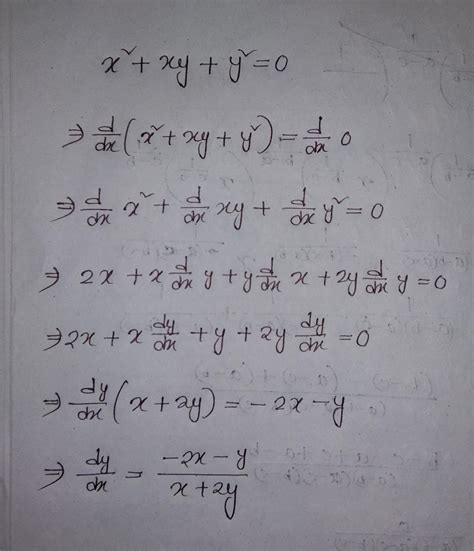 x² + xy + y² = 0
⇒ d/dx (x² + xy + y²) = d/dx 0
⇒ d/dx x² + d/dx xy + d/dx y² = 0
⇒ 2x + x d/dx y + y d/dx x + 2y d/dx y = 0
⇒ 2x + x dy/dx + y + 2y dy/dx = 0
⇒ dy/dx (x + 2y) = -2x - y
⇒ dy/dx = (-2x - y)/(x + 2y)